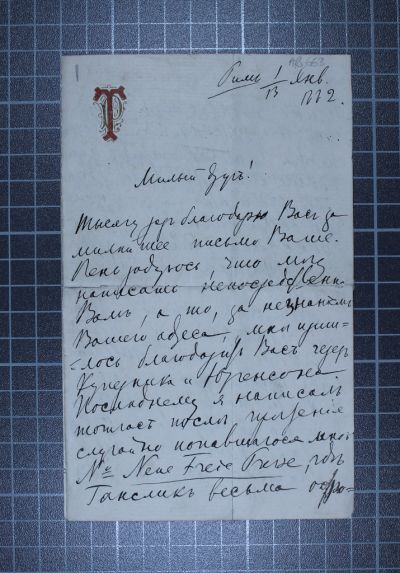 Римъ 1/13 Янв.
1882.
Милый другъ!
Тысячу разъ благодарю Васъ за
милейшее письмо Ваше.
Очень радуюсь, что могу
написать непосредственно
Вамъ, а то, за незнаніемъ
Вашего адреса, мнѣ приш-
лось благодарить Васъ черезъ
Юргенсона.
Послѣднему я написалъ
тотчасъ послѣ чтенія
случайно попавшагося мнѣ
№ Neue Freie Presse, гдѣ
Гансликъ весьма